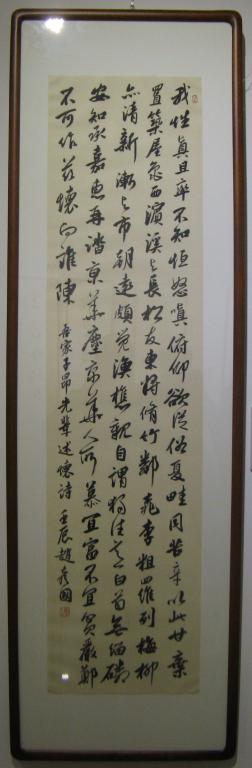 我性真且率不知恒怒嗔俯仰欲從俗夏畦同苦辛以此甘棄
置築屋龜西濱溪与長松友東將脩竹鄰桃李粗羅列梅柳
亦清新漸与市朝遠頗覺漁樵親自謂獨往白首無緇磷
安知承嘉惠再踏京華塵京華人所慕宜富不宜貧嚴鄭
不可作茲懷向誰陳 吾家子昂先輩述懷詩 壬辰趙彥國